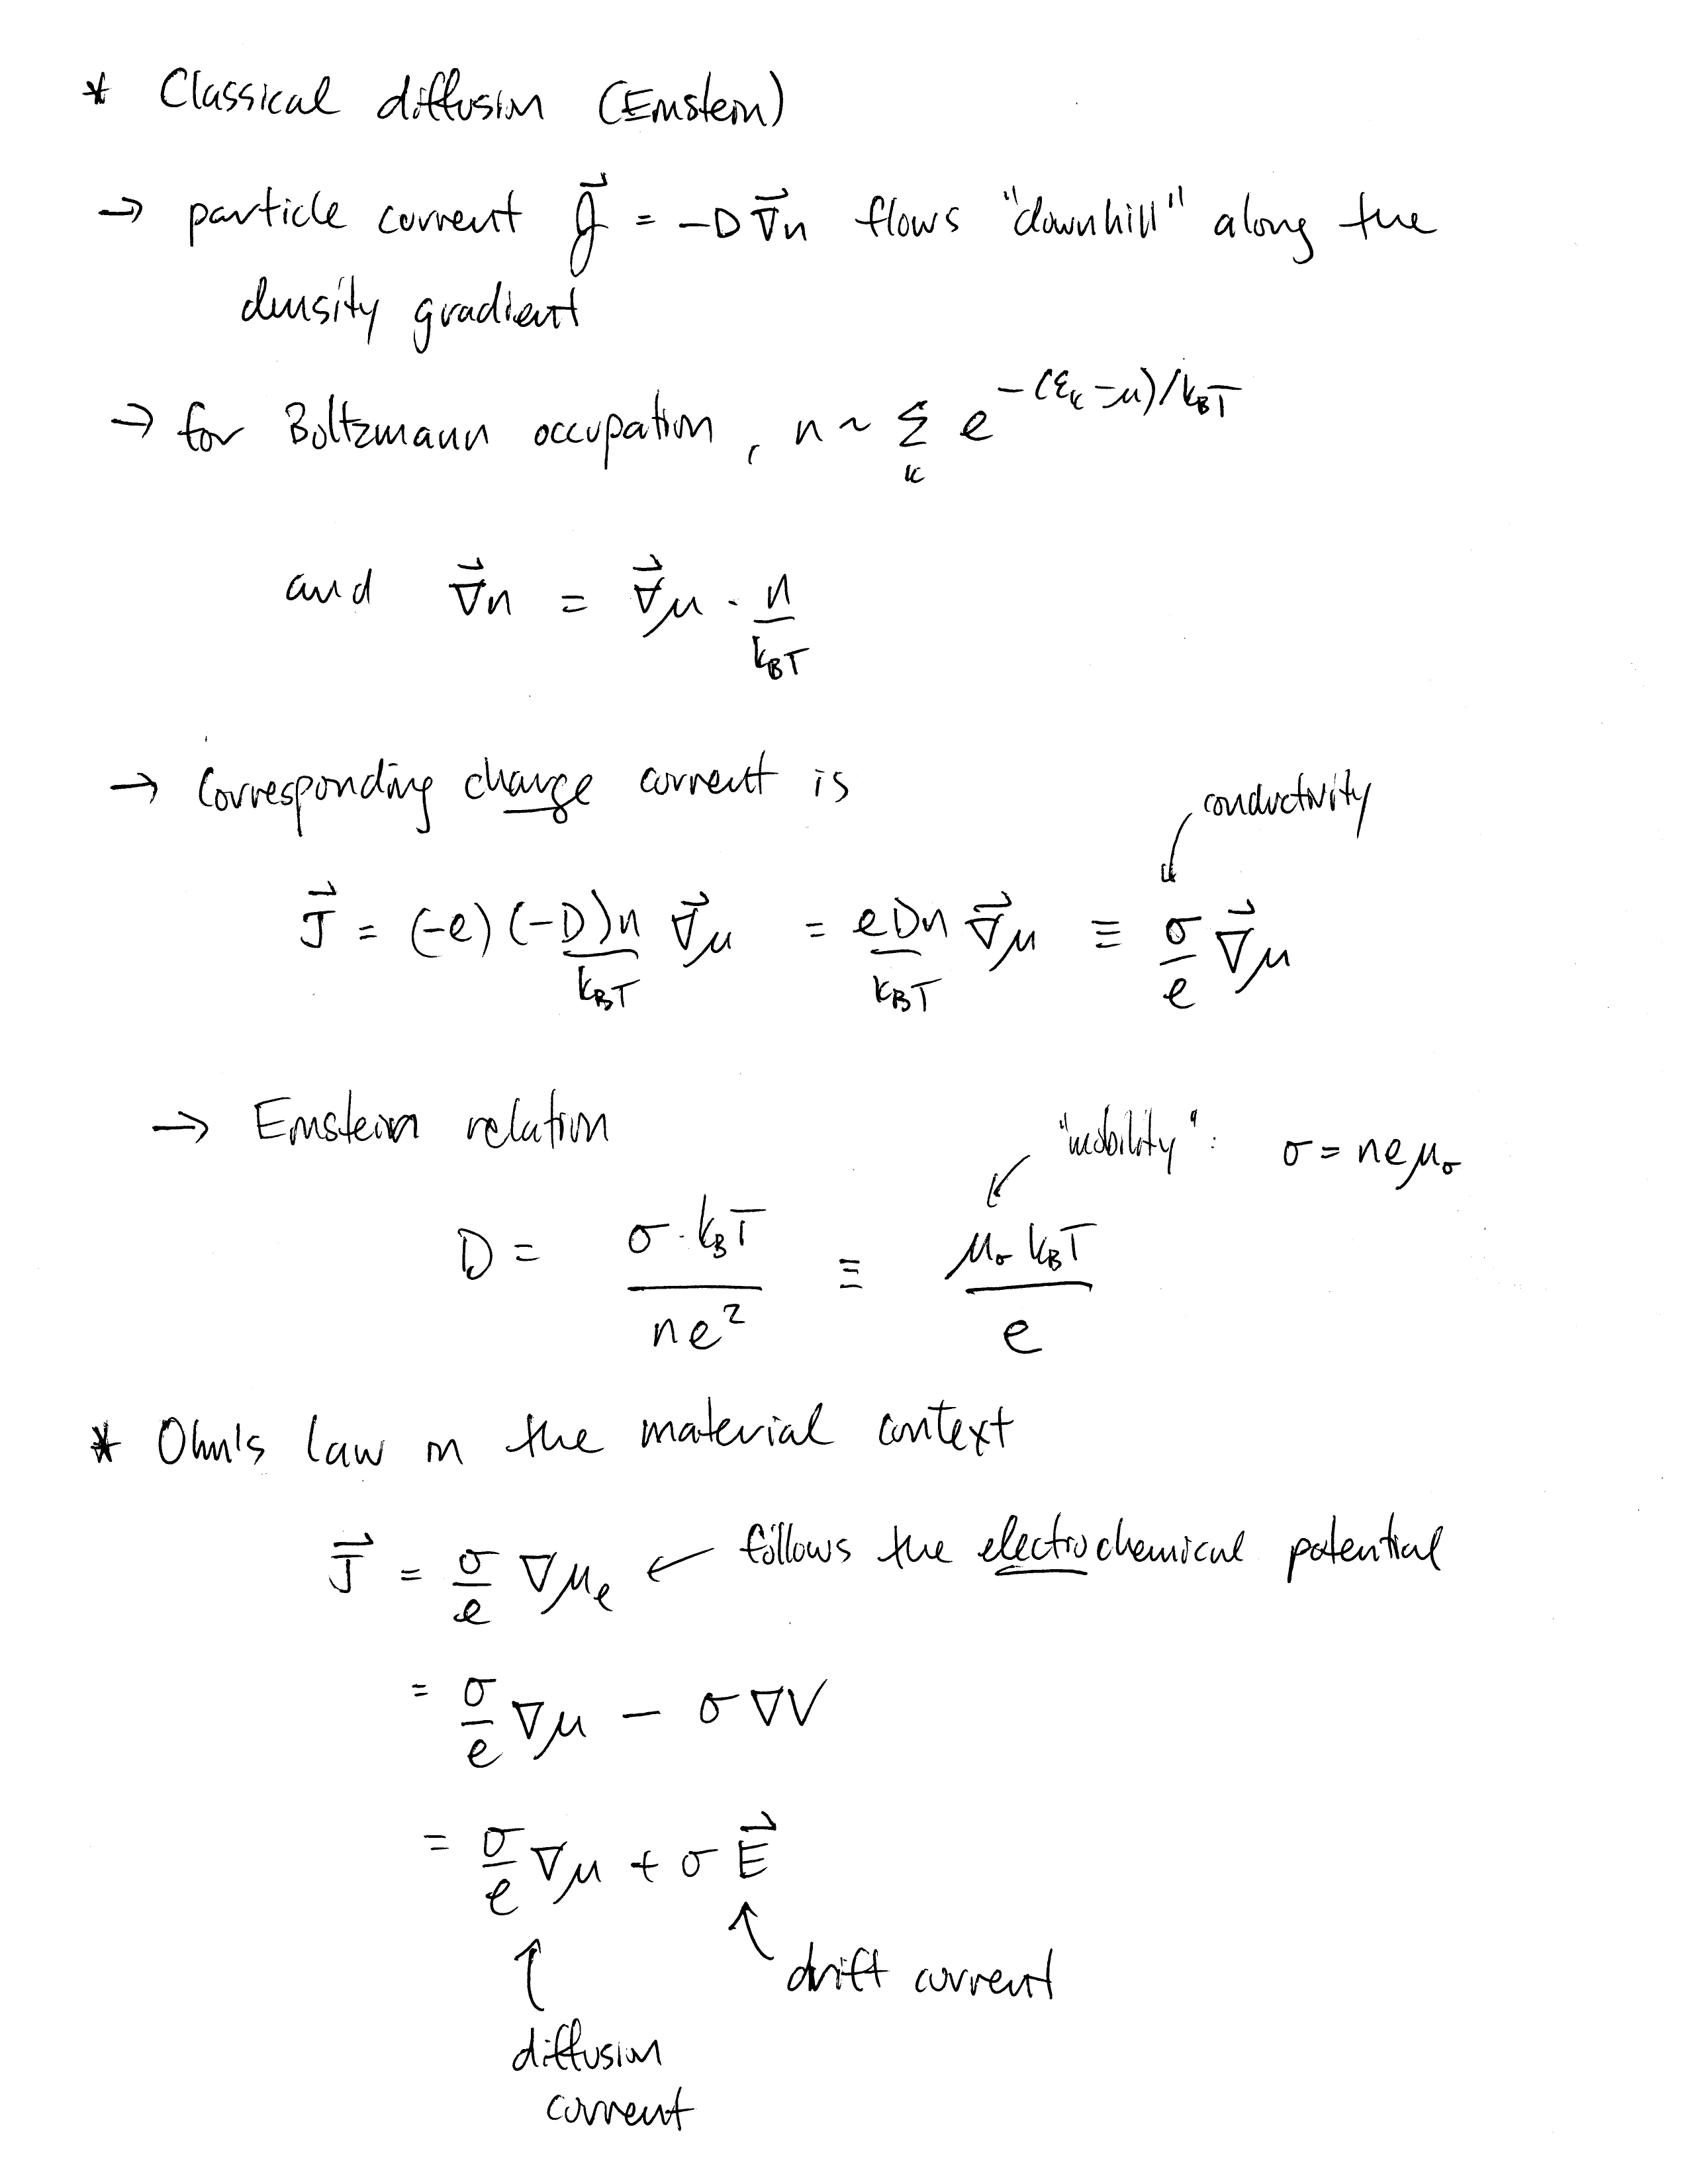 * Classical diffusion (Einstein)
→ particle current \vec{J} = -D \vec{∇}n flows "downhill" along the
density gradient
→ for Boltzmann occupation, n ~ Σ_k e^{-(ε_k - μ)/k_BT}
and \vec{∇}n = \vec{∇}μ · n/k_BT
→ Corresponding charge current is
conductivity
\vec{J} = (-e) (-D)n/k_BT \vec{∇}μ = eDn/k_BT \vec{∇}μ ≡ σ/e \vec{∇}μ
→ Einstein relation
"mobility": σ = neμ_σ
D = σ·k_BT/ne² ≡ μ_σ k_BT/e
* Ohm's law in the material context
\vec{J} = σ/e ∇μ_e ← follows the electrochemical potential
= σ/e ∇μ - σ∇V
= σ/e ∇μ + σ\vec{E}
drift current
diffusion
current